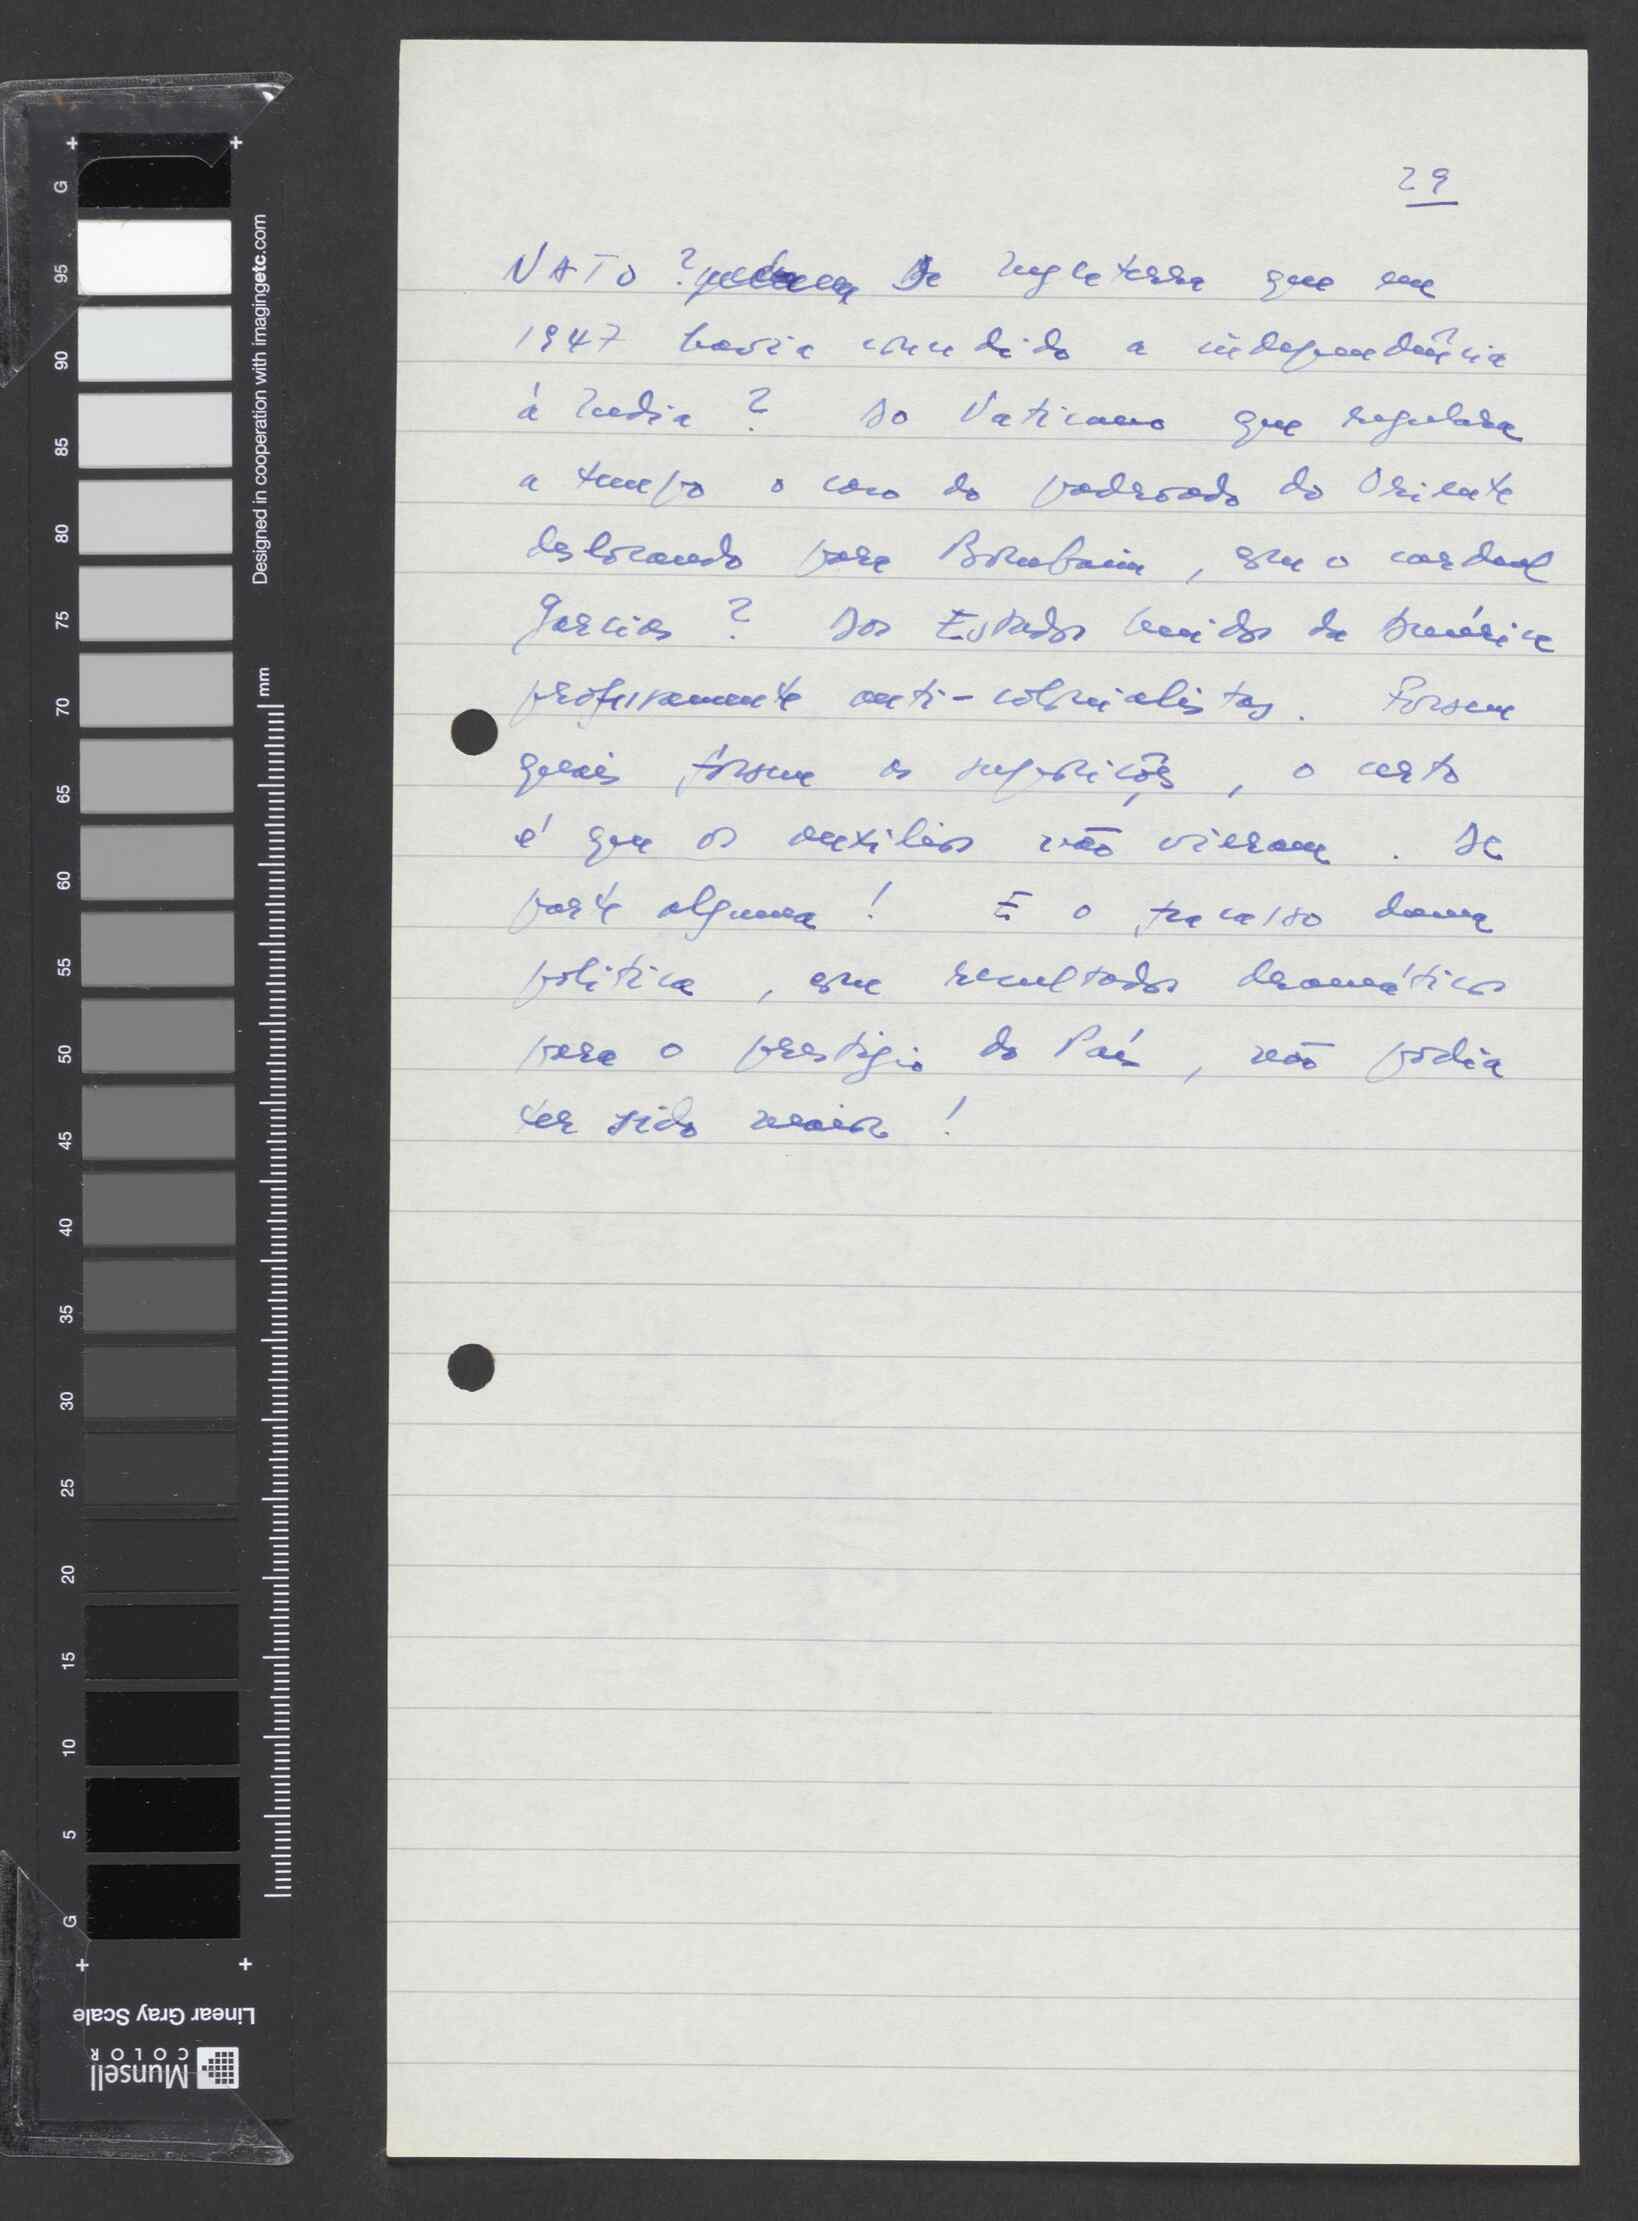 29
NATO? Da Inglaterra que em
1947 havia concedido a independência
á India? Do Vaticano que regulara
a tempo o caso do padroado do Oriente
deslocando para Bombaim, com o cardeal
Gracias? Dos Estados Unidos da América
professamente anti-colonialistas. Fossem
quais fossem as suposições, o certo
é que os auxilios não vieram. De
parte alguma! E o fracasso duma
politica, com resultados dramáticos
para o prestigio do País, não podia
ter sido maior!
G
95
90
85
80
75
70
65
60
55
50
45
40
35
30
25
20
15
10
5
G
Designed in cooperation with imagingetc.com
mm
Linear Gray Scale
Munsell
COLOR